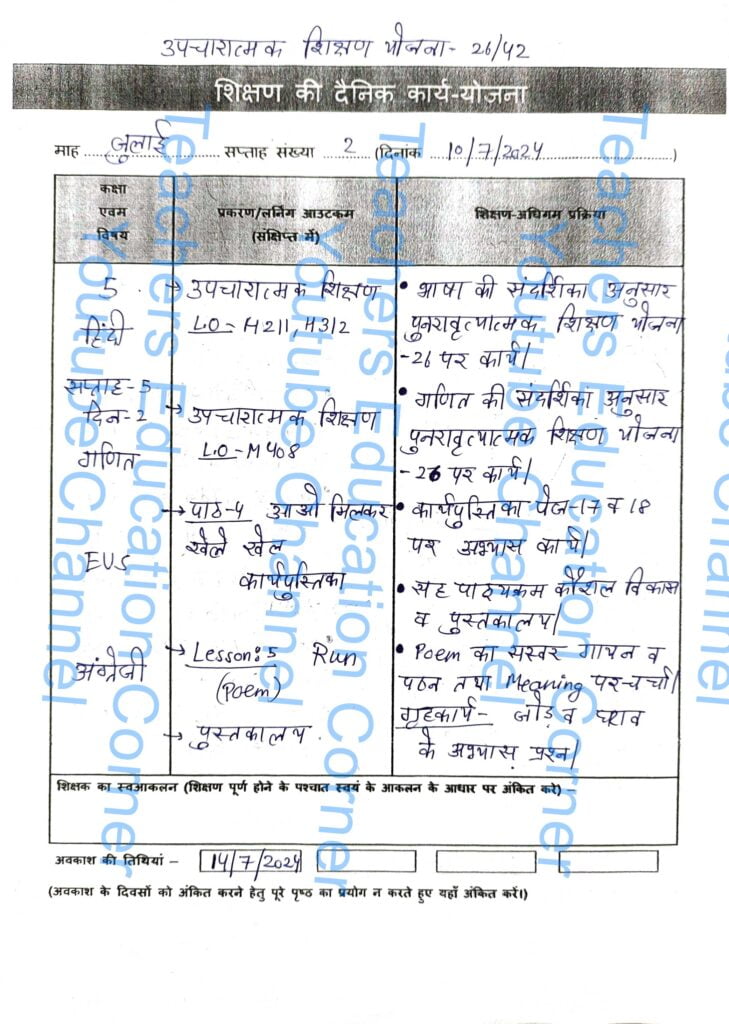 उपचारात्मक शिक्षण योजना- 26/42
शिक्षण की दैनिक कार्य-योजना
माह जुलाई सप्ताह संख्या 2 (दिनांक 10/7/2024)
कक्षा
एवम
विषय
प्रकरण/लर्निंग आउटकम
(संक्षिप्त में)
शिक्षण-अधिगम प्रक्रिया
5
हिंदी
सप्ताह-5
दिन-2
गणित
EVS
अंग्रेजी
→ उपचारात्मक शिक्षण
L.O-H211, H312
→ उपचारात्मक शिक्षण
L.O-M408
→ पाठ-4 आओ मिलकर
खेले खेल
कार्यपुस्तिका
→ Lesson:5 Run
(Poem)
→ पुस्तकालय
• भाषा की संदर्शिका अनुसार
पुनरावृत्यात्मक शिक्षण योजना
-26 पर कार्य।
• गणित की संदर्शिका अनुसार
पुनरावृत्यात्मक शिक्षण योजना
-26 पर कार्य।
• कार्यपुस्तिका पेज-17 व 18
पर अभ्यास कार्य।
• सह पाठ्यक्रम कौशल विकास
व पुस्तकालय।
• Poem का सस्वर गायन व
पठन तथा Meaning पर चर्चा।
गृहकार्य- जोड़ व घटाव
के अभ्यास प्रश्न।
शिक्षक का स्वआकलन (शिक्षण पूर्ण होने के पश्चात स्वयं के आकलन के आधार पर अंकित करे) –
अवकाश की तिथियां – 14/7/2024
(अवकाश के दिवसों को अंकित करने हेतु पूरे पृष्ठ का प्रयोग न करते हुए यहाँ अंकित करें।)
Teachers Education Corner
Youtube Channel
Teachers Education Corner
Youtube Channel
Teachers Education Corner
Youtube Channel